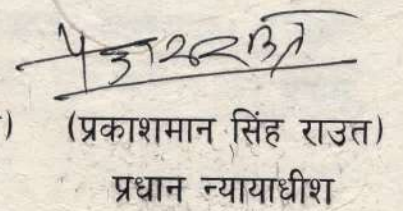 ) (प्रकाशमान सिंह राउत)
प्रधान न्यायाधीश